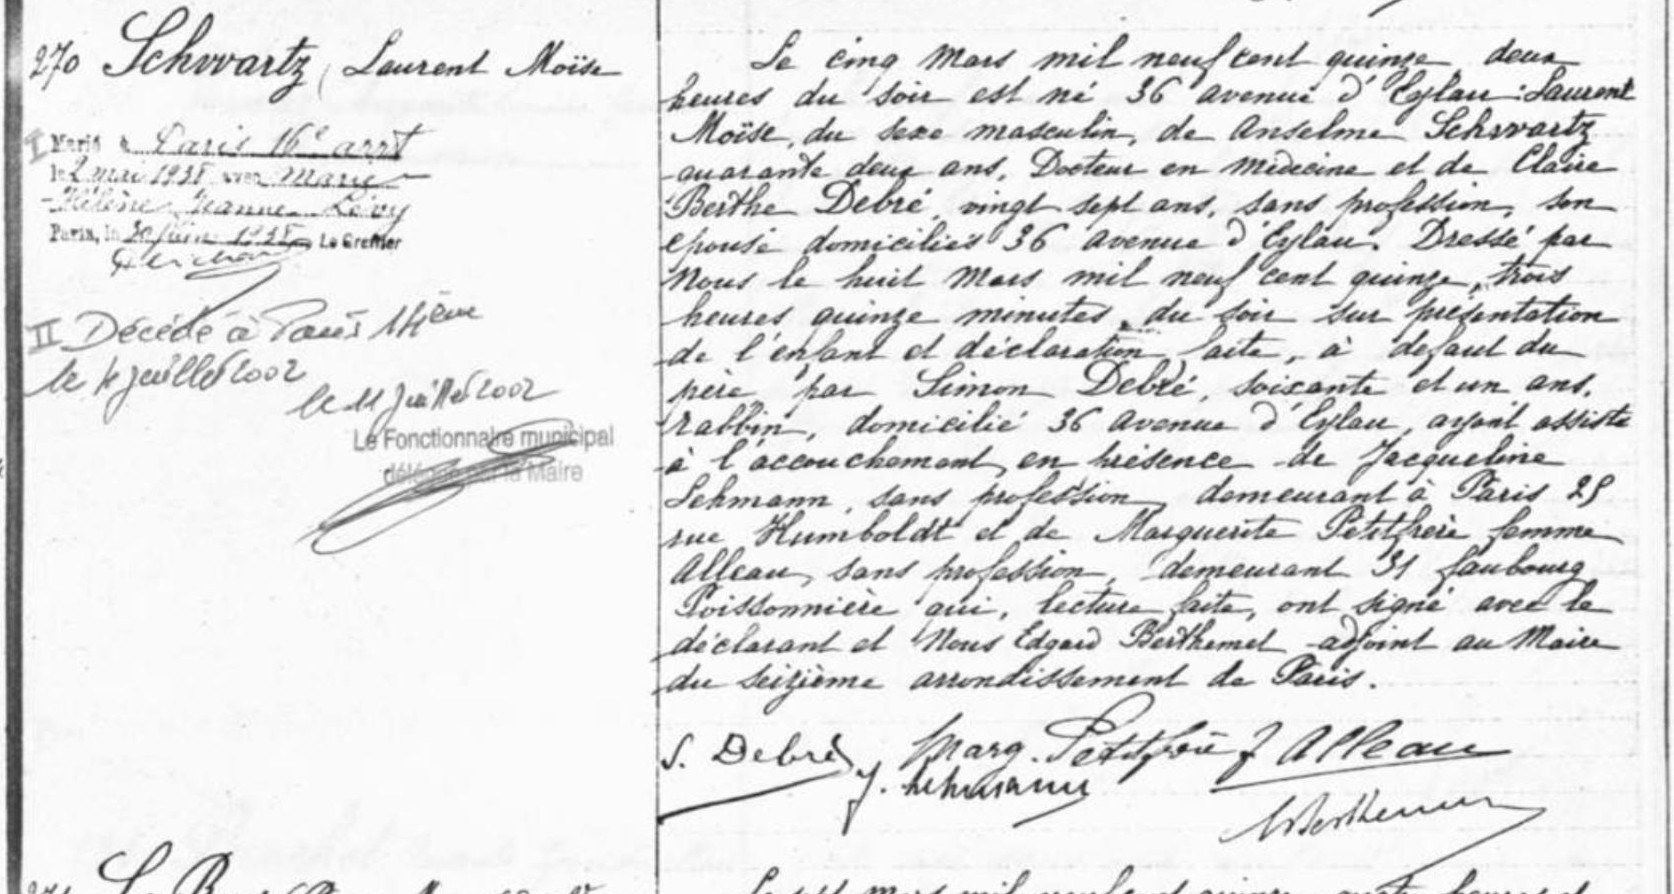 270 Schwartz, Laurent Moïse
I Marié à Paris 16e arrt
le 2 mai 1938 avec Marie
Hélène Jeanne Lévy
Paris, le 20 juin 1938 Le Greffier
II Décédé à Paris
le 4 juillet 2002
le 11 juillet 2002
Le Fonctionnaire municipal
délégué par la Maire
Le cinq Mars mil neuf cent quinze deux
heures du soir est né 36 avenue d'Eylau : Laurent
Moïse, du sexe masculin, de Anselme Schwartz
quarante deux ans, Docteur en médecine et de Claire
Berthe Debré, vingt sept ans, sans profession, son
épouse domiciliés 36 avenue d'Eylau. Dressé par
Nous le huit Mars mil neuf cent quinze, trois
heures quinze minutes du soir sur présentation
de l'enfant et déclaration faite, à défaut du
père, par Simon Debré, soixante et un ans,
rabbin, domicilié 36 avenue d'Eylau, ayant assisté
à l'accouchement, en présence de Jacqueline
Lehmann, sans profession, demeurant à Paris 25
rue Humboldt et de Marguerite Petitfrère femme
Alleau, sans profession, demeurant 31 faubourg
Poissonnière qui, lecture faite, ont signé avec le
déclarant et Nous Edgard Berthemet adjoint au Maire
du seizième arrondissement de Paris.
S. Debré Marg. Petitfrère f Alleau
J. Lehmann
Berthemet